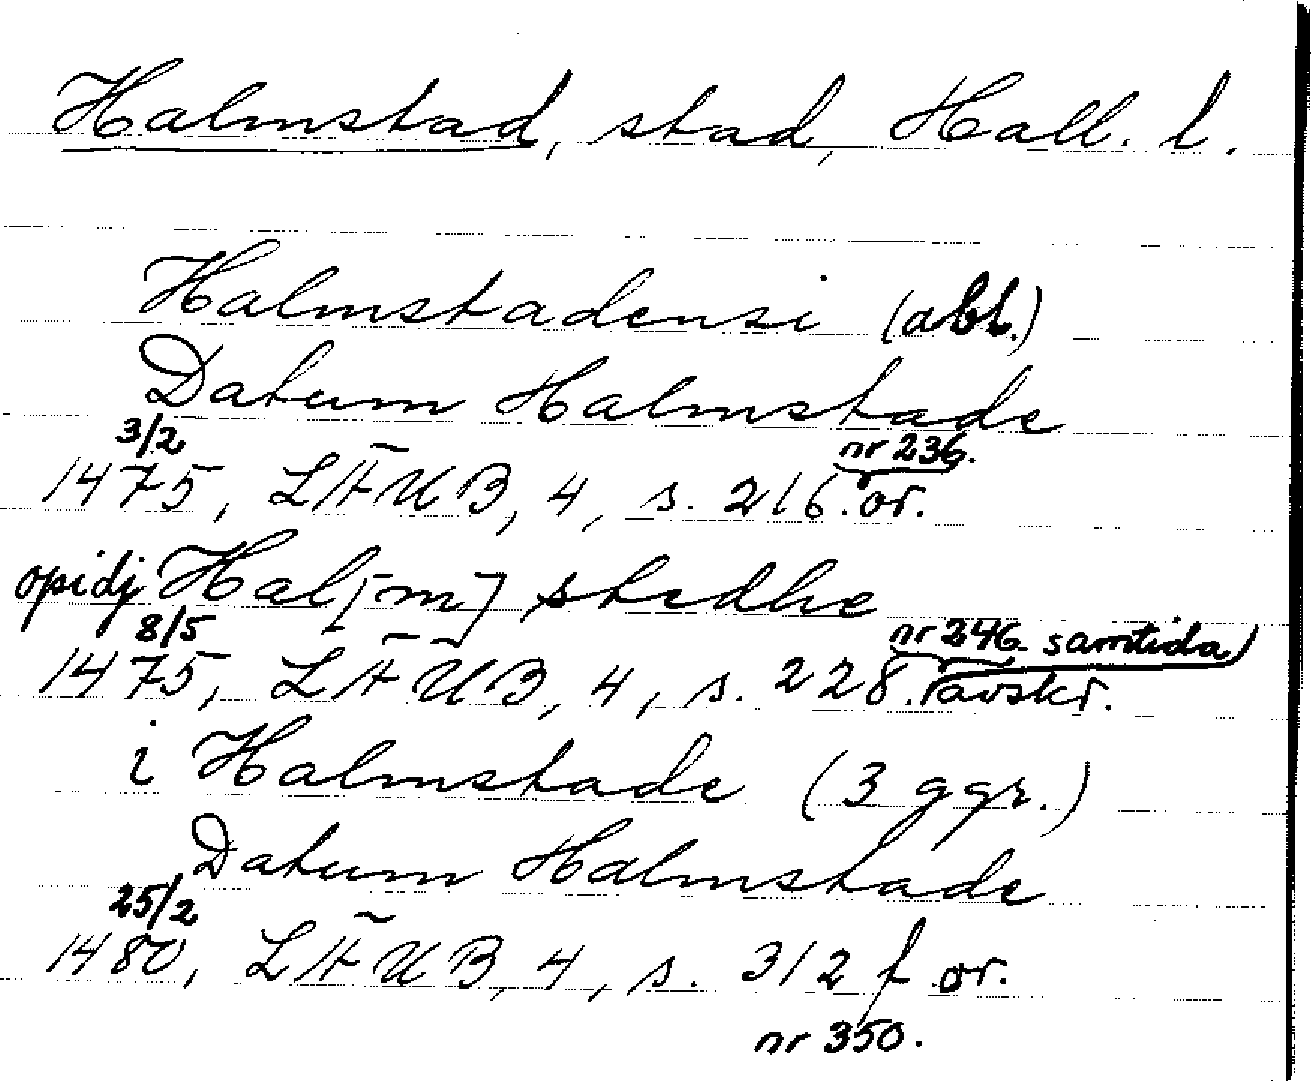 Halmstad, stad, Hall. l.
Halmstadensi (abl.)
Datum Halmstade
3/2 nr 236.
1475, LÄUB, 4, s. 216. or.
opidj Hal[m]stedhe
8/5 nr 246. samtida
1475, LÄUB, 4, s. 228. avskr.
i Halmstade (3 ggr.)
Datum Halmstade
25/2
1480, LÄUB, 4, s. 312 f or.
nr 350.